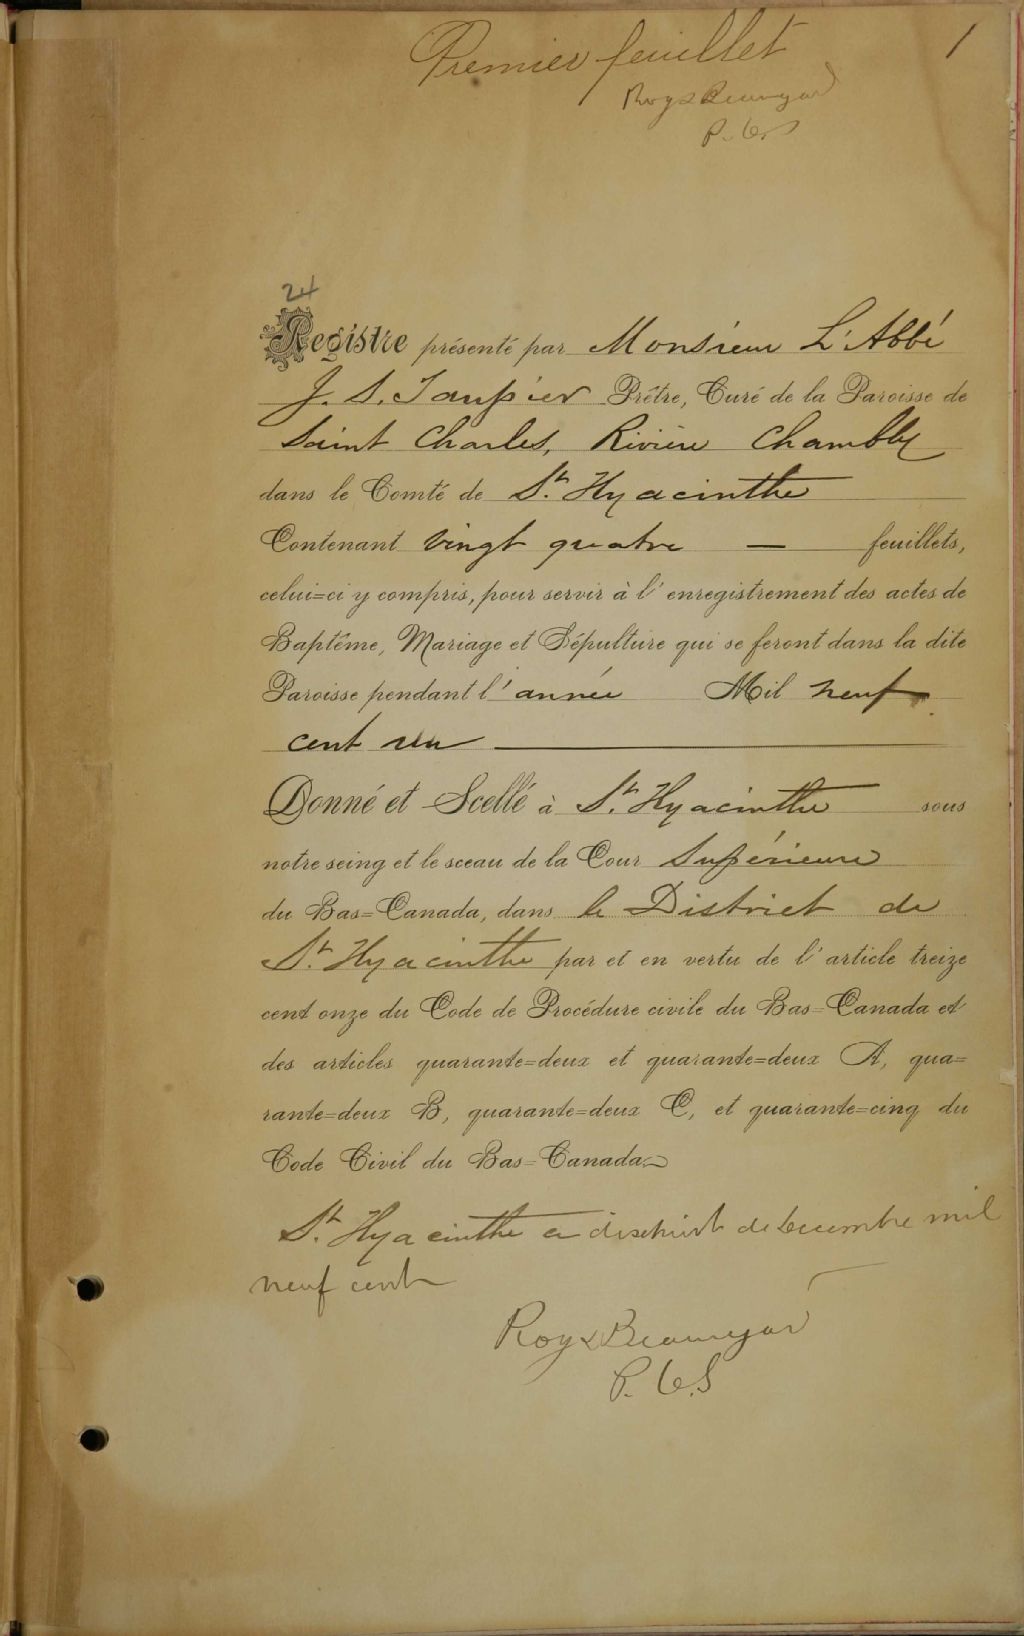 Premier feuillet
1
Roy & Beauregard
P. C. S
24
Registre présenté par Monsieur L'Abbé
J. S. Taupier Prêtre, Curé de la Paroisse de
Saint Charles, Rivière Chambly
dans le Comté de St. Hyacinthe
Contenant vingt quatre — feuillets,
celui=ci y compris, pour servir à l'enregistrement des actes de
Baptême, Mariage et Sépulture qui se feront dans la dite
Paroisse pendant l'année Mil neuf
cent un
Donné et Scellé à St. Hyacinthe sous
notre seing et le sceau de la Cour Supérieure
du Bas=Canada, dans le District de
St. Hyacinthe par et en vertu de l'article treize
cent onze du Code de Procédure civile du Bas=Canada et
des articles quarante=deux et quarante=deux A, qua=
rante=deux B, quarante=deux C, et quarante=cinq du
Code Civil du Bas=Canada
St. Hyacinthe ce dixhuit decembre mil
neuf cent
Roy & Beauregard
P. C. S